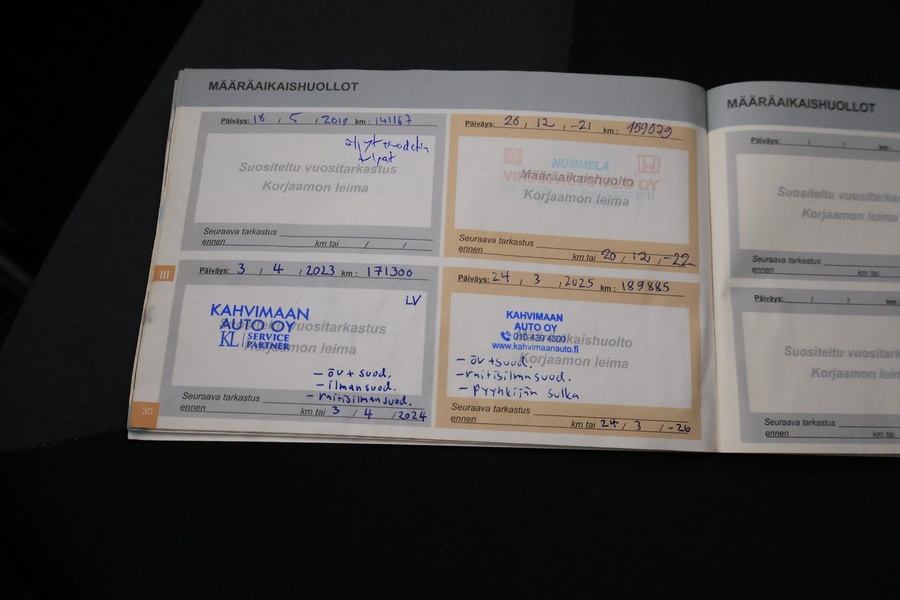 MÄÄRÄAIKAISHUOLLOT
Päiväys: 18 / 5 / 2019 km: 141167
Suositeltu vuositarkastus
Korjaamon leima
Seuraava tarkastus
ennen km tai / /
Päiväys: 20 / 12 / -21 km: 159079
NUMMELA
Määräaikaishuolto
Korjaamon leima
Seuraava tarkastus
ennen km tai 20 / 12 / -22
III
Päiväys: 3 / 4 / 2023 km: 171300
LV
KAHVIMAAN
AUTO OY
KL SERVICE PARTNER
Korjaamon leima
- öv + suod.
- ilmansuod.
- raitisilmansuod.
Seuraava tarkastus
ennen km tai 3 / 4 / 2024
30
Päiväys: 24 / 3 / 2025 km: 189885
KAHVIMAAN
AUTO OY
010 439 4300
www.kahvimaanauto.fi
Korjaamon leima
- öv + suod.
- raitisilmansuod.
- pyyhkijän sulka
Seuraava tarkastus
ennen km tai 24 / 3 / -26
MÄÄRÄAIKAISHUOLLOT
Päiväys: / / km
Suositeltu vuositarkastus
Korjaamon leima
Seuraava tarkastus
ennen km tai
Päiväys: / / km
Suositeltu vuositarkastus
Korjaamon leima
Seuraava tarkastus
ennen km tai